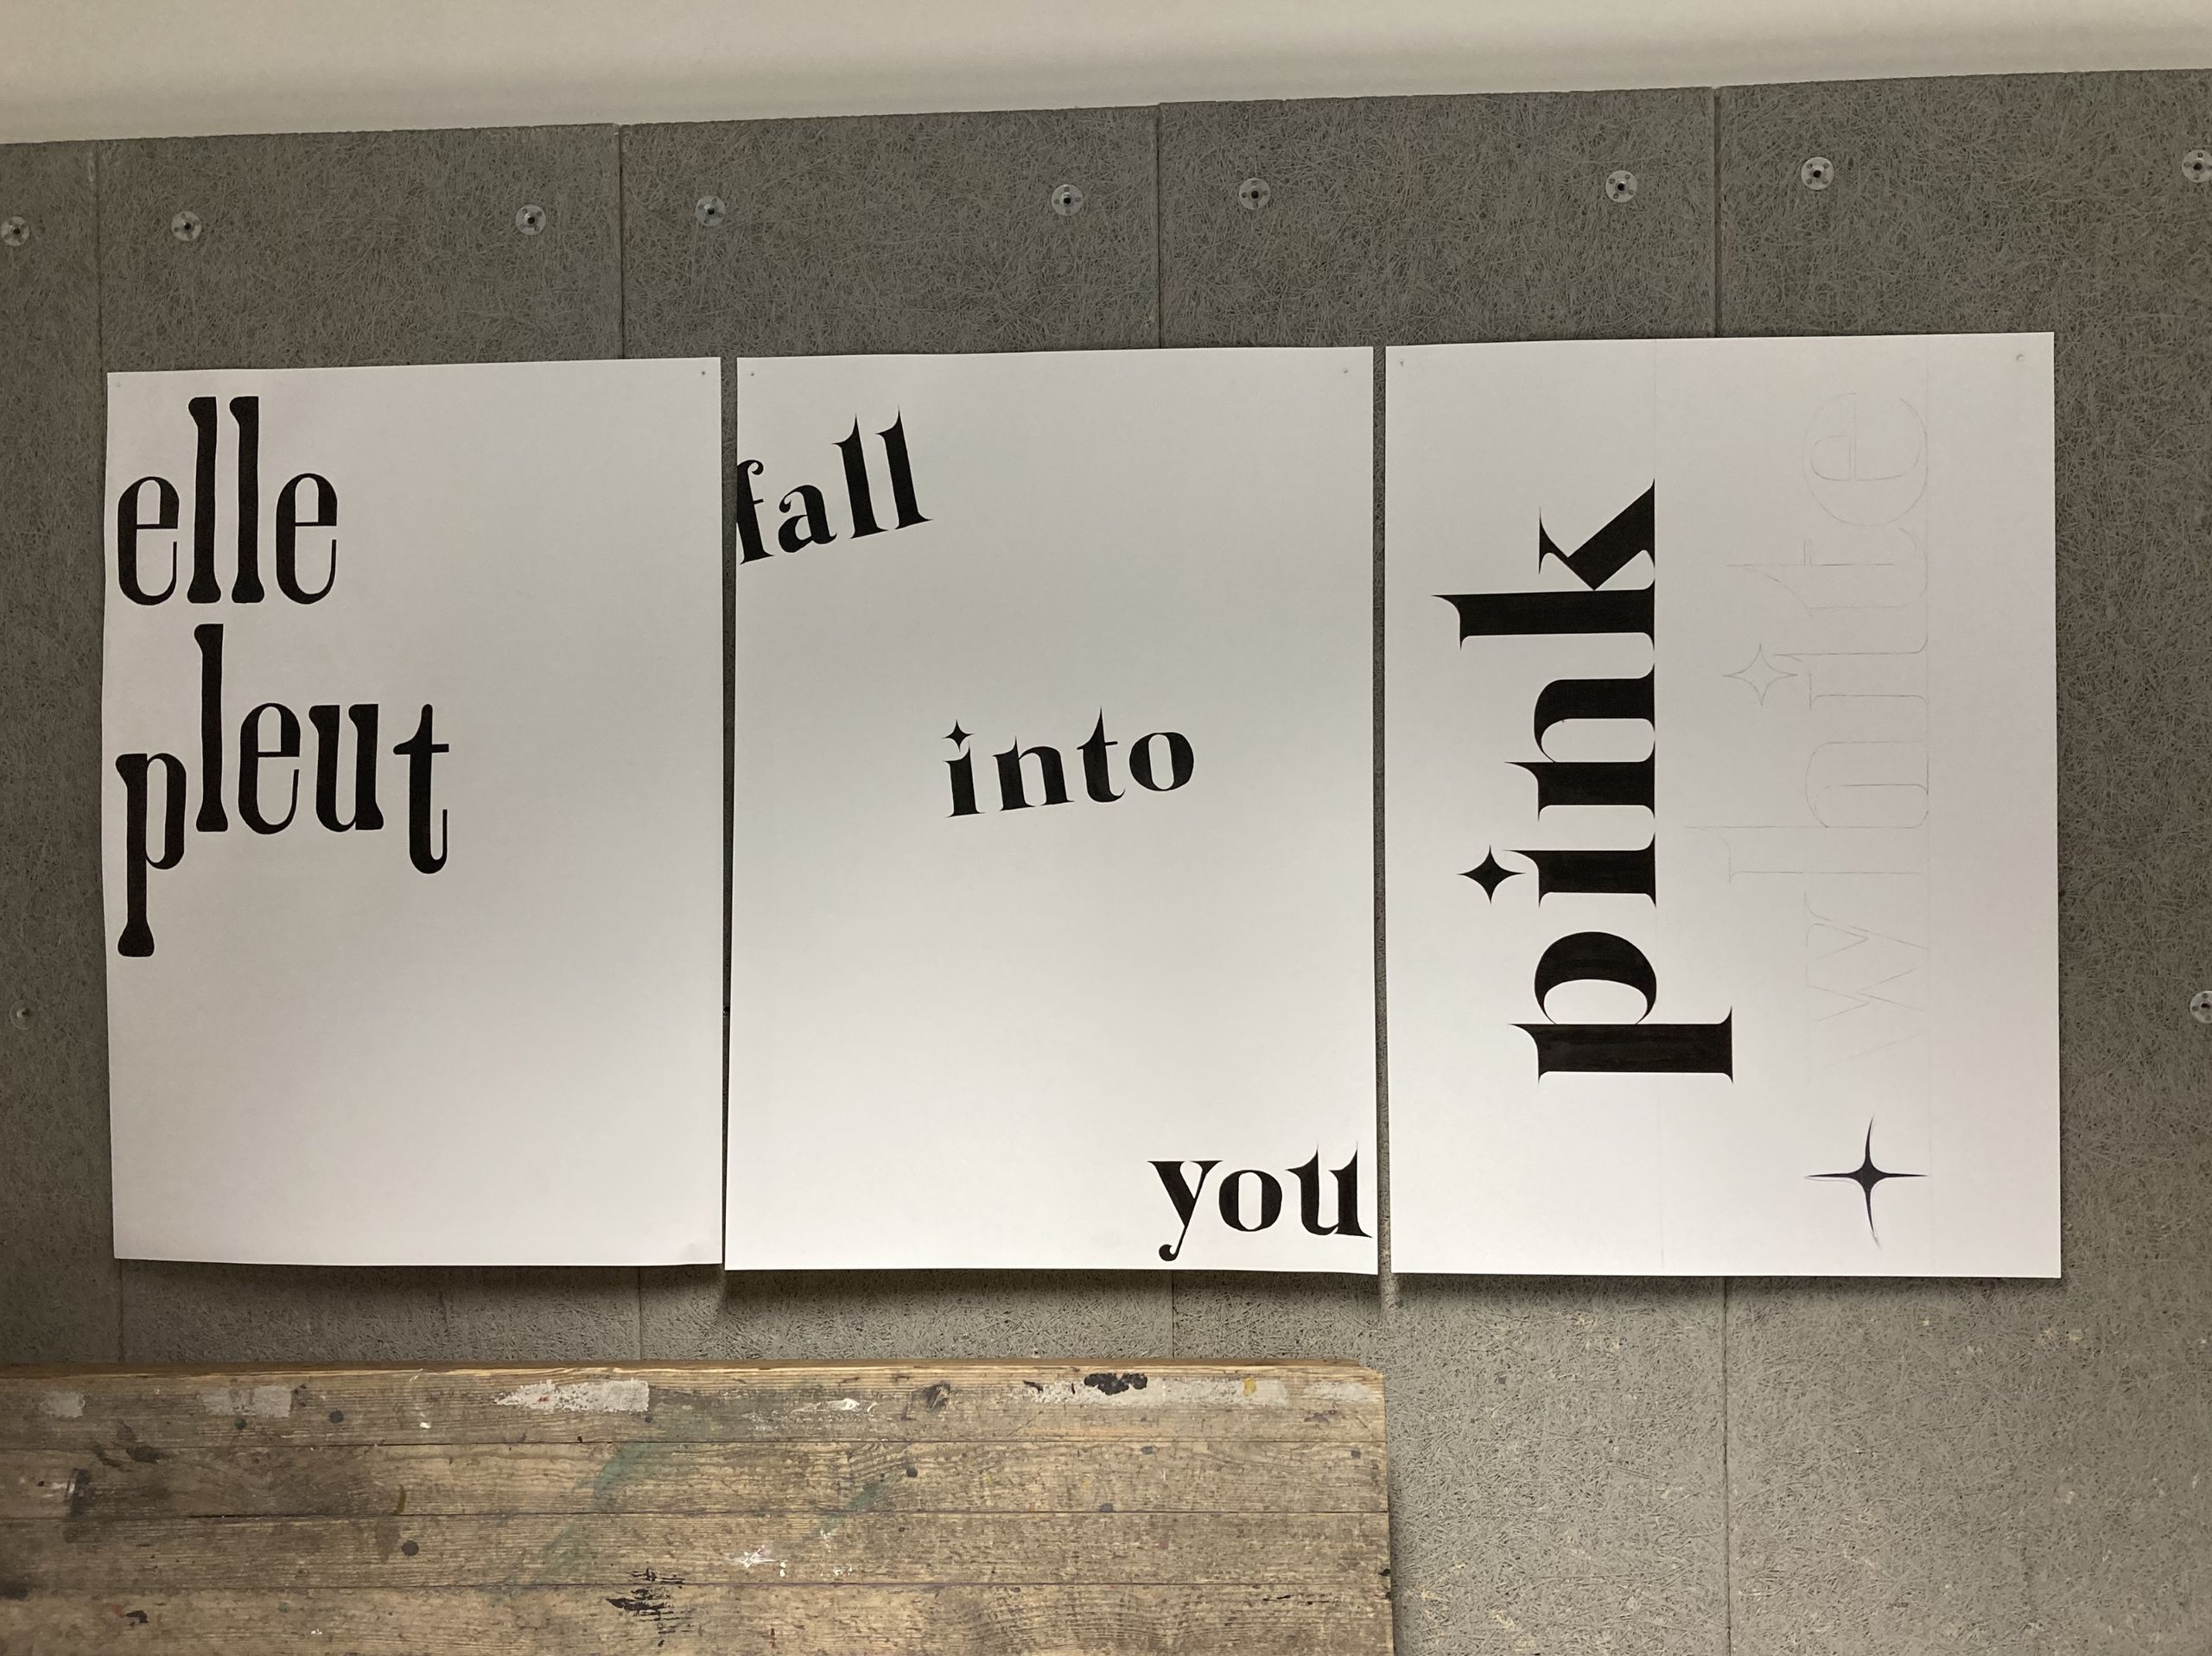 elle
pleut
fall
into
you
pink
white